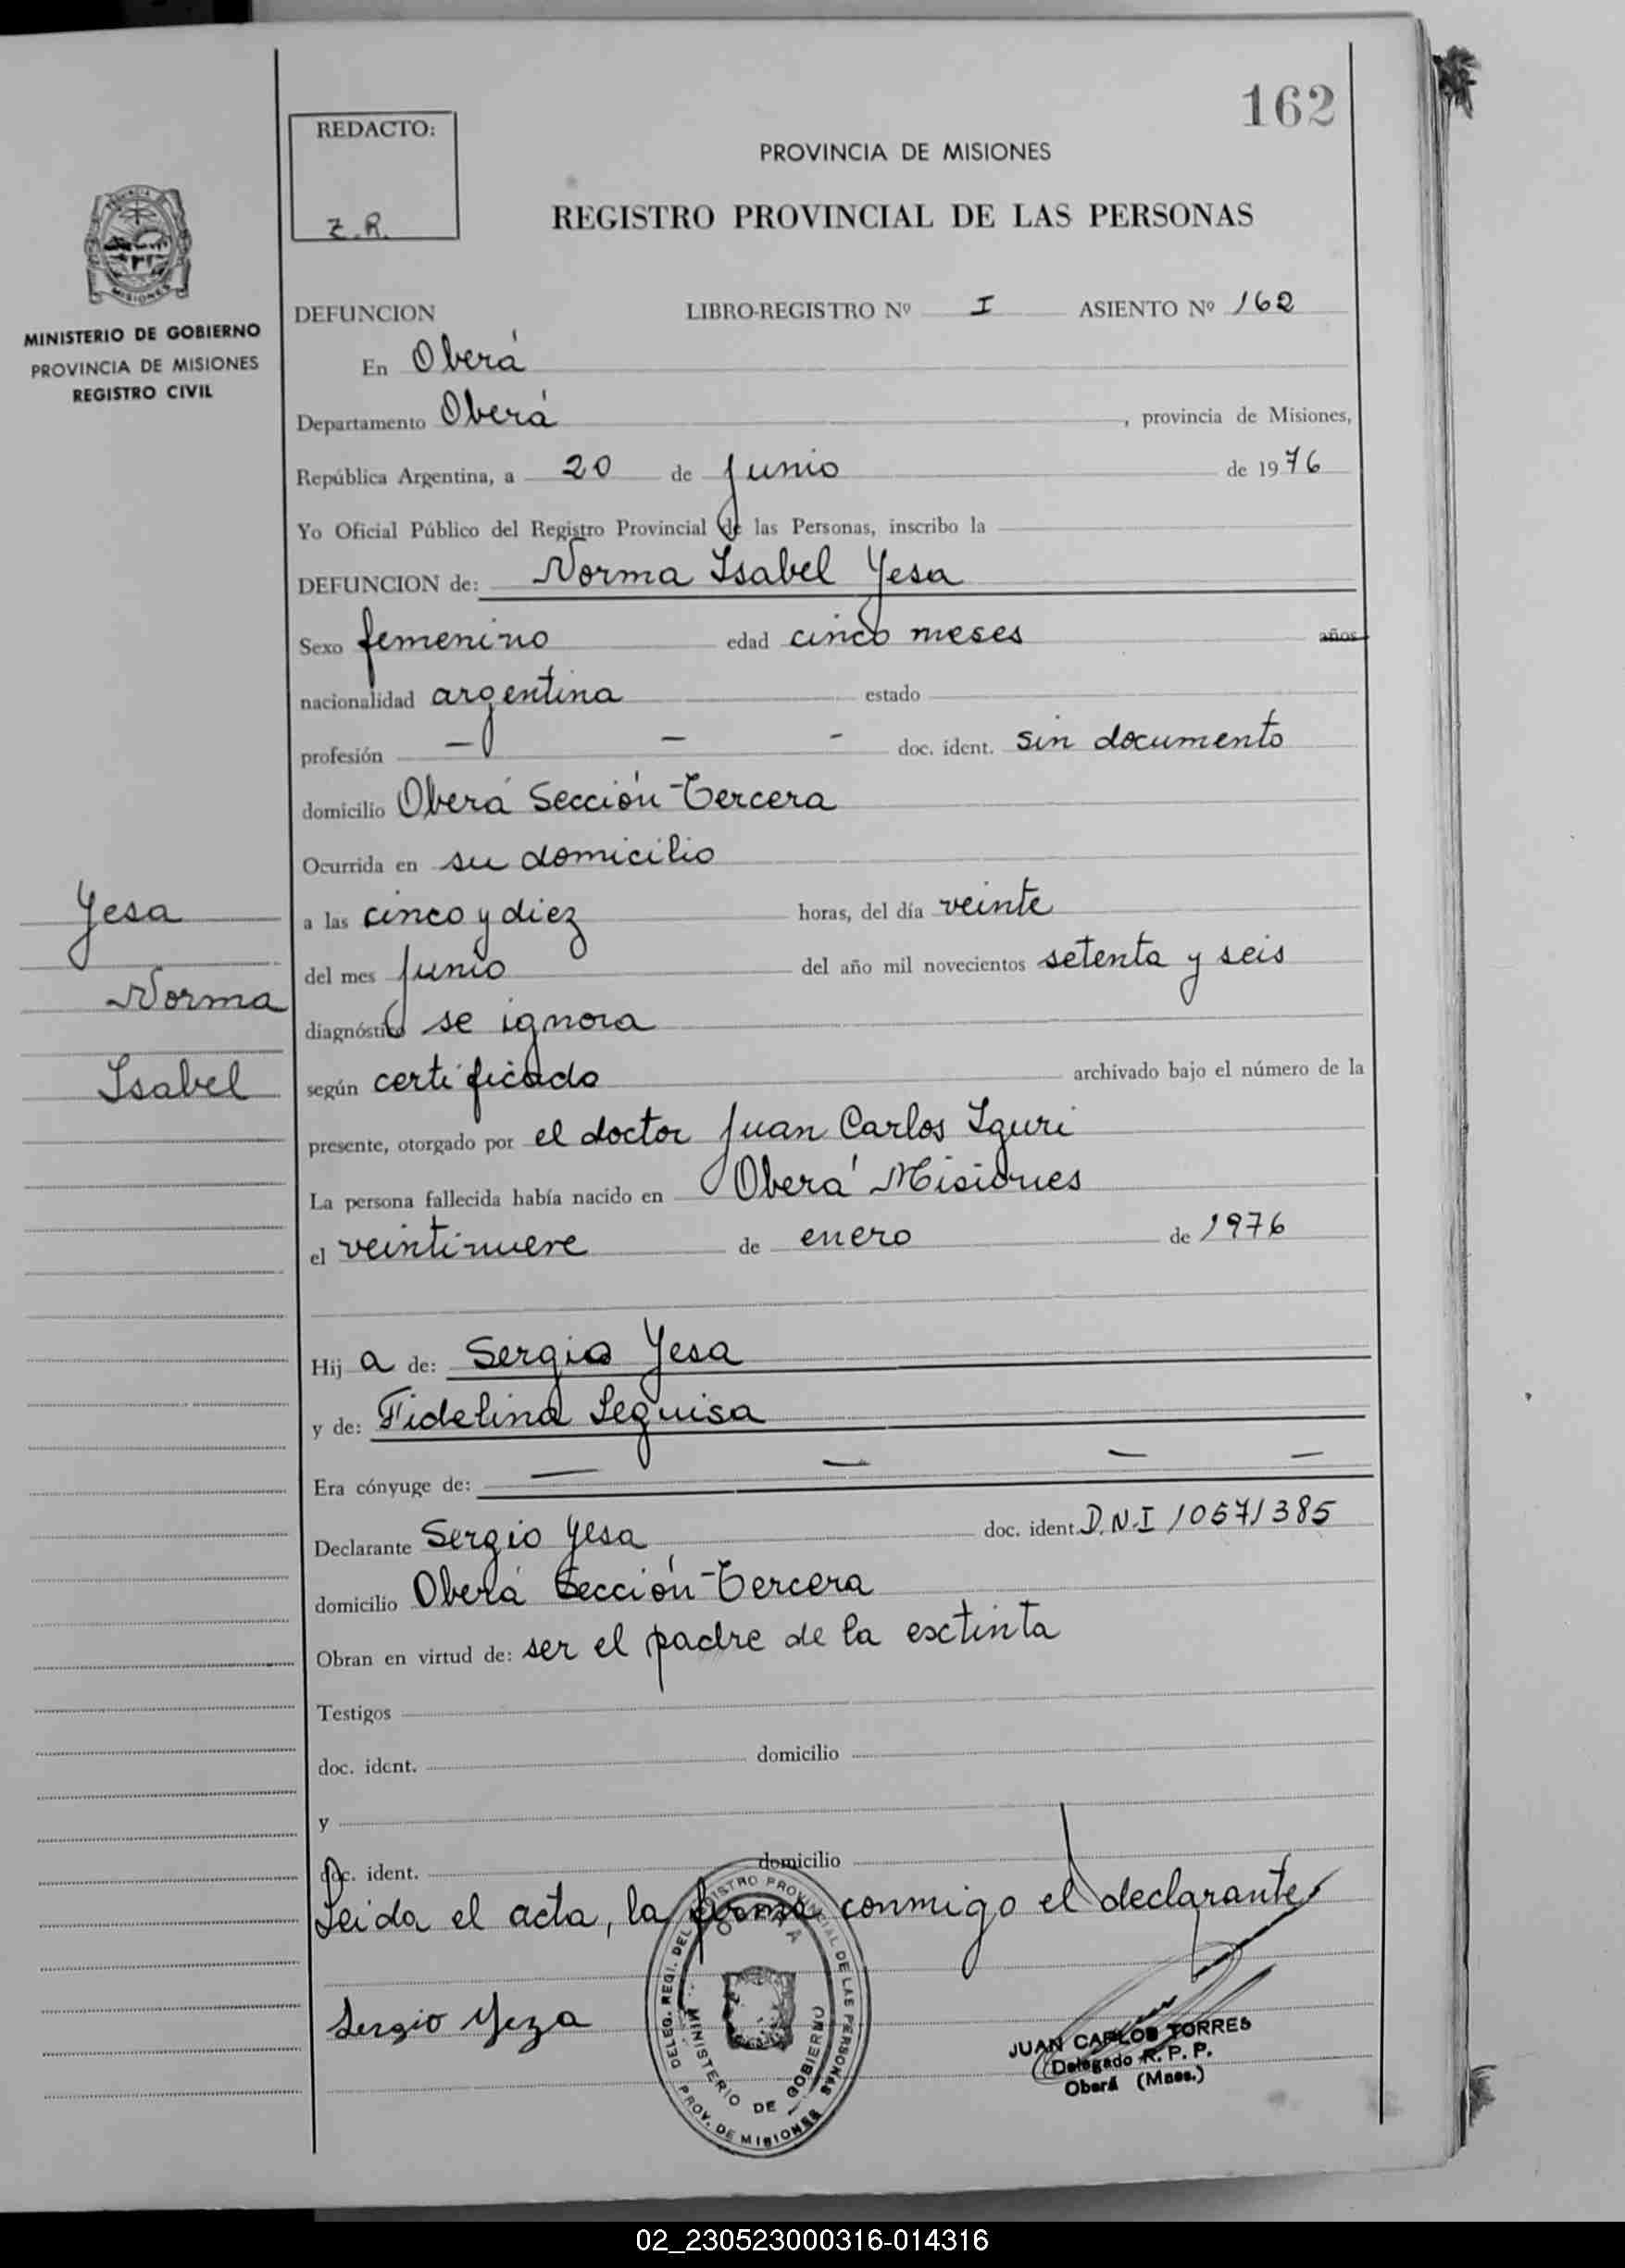 162
REDACTO:
Z.R.
PROVINCIA DE MISIONES
REGISTRO PROVINCIAL DE LAS PERSONAS
MINISTERIO DE GOBIERNO
PROVINCIA DE MISIONES
REGISTRO CIVIL
DEFUNCION LIBRO-REGISTRO Nº I ASIENTO Nº 162
En Oberá
Departamento Oberá, provincia de Misiones,
República Argentina, a 20 de Junio de 1976
Yo Oficial Público del Registro Provincial de las Personas, inscribo la
DEFUNCION de: Norma Isabel Yesa
Sexo femenino edad cinco meses años
nacionalidad argentina estado
profesión — — - doc. ident. sin documento
domicilio Oberá Sección Tercera
Ocurrida en su domicilio
Yesa
Norma
Isabel
a las cinco y diez horas, del día veinte
del mes Junio del año mil novecientos setenta y seis
diagnóstico se ignora
según certificado archivado bajo el número de la
presente, otorgado por el doctor Juan Carlos Iguri
La persona fallecida había nacido en Oberá Misiones
el veintinueve de enero de 1976
Hij a de: Sergio Yesa
y de: Fidelina Leguisa
Era cónyuge de: — — — —
Declarante Sergio Yesa doc. ident. D.N.I 10571385
domicilio Oberá Sección Tercera
Obran en virtud de: ser el padre de la esctinta
Testigos
doc. ident. domicilio
y
doc. ident. domicilio
Leida el acta, la firma conmigo el declarante
Sergio Yeza
DELEG. REGI. DEL REGISTRO PROVINCIAL DE LAS PERSONAS
OBERA
MINISTERIO DE GOBIERNO
PROV. DE MISIONES
JUAN CARLOS TORRES
Delegado R. P. P.
Oberá (Mnes.)
02_230523000316-014316